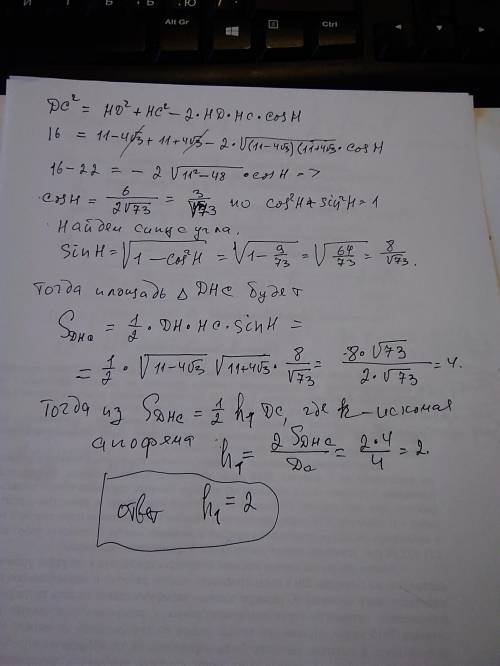 Alt Gr
Ctrl
DC² = HD² + HC² - 2·HD·HC·cosH
16 = 11-4√3 + 11+4√3 - 2·√(11-4√3)(11+4√3)·cosH
16-22 = -2√11²-48 · cosH =>
cosH = 6/2√73 = 3/√73 но cos²H + sin²H = 1
Найдем синус угла.
SinH = √1-cos²H = √1-9/73 = √64/73 = 8/√73.
Тогда площадь △ DHC будет
S_DHC = 1/2 · DH · HC · sinH =
= 1/2 · √11-4√3 √11+4√3 · 8/√73 = 8·√73/2·√73 = 4.
Тогда из S_DHC = 1/2 h₁ DC, где h-искомая
апофема h₁ = 2S_DHC/DC = 2·4/4 = 2.
ответ h₁ = 2